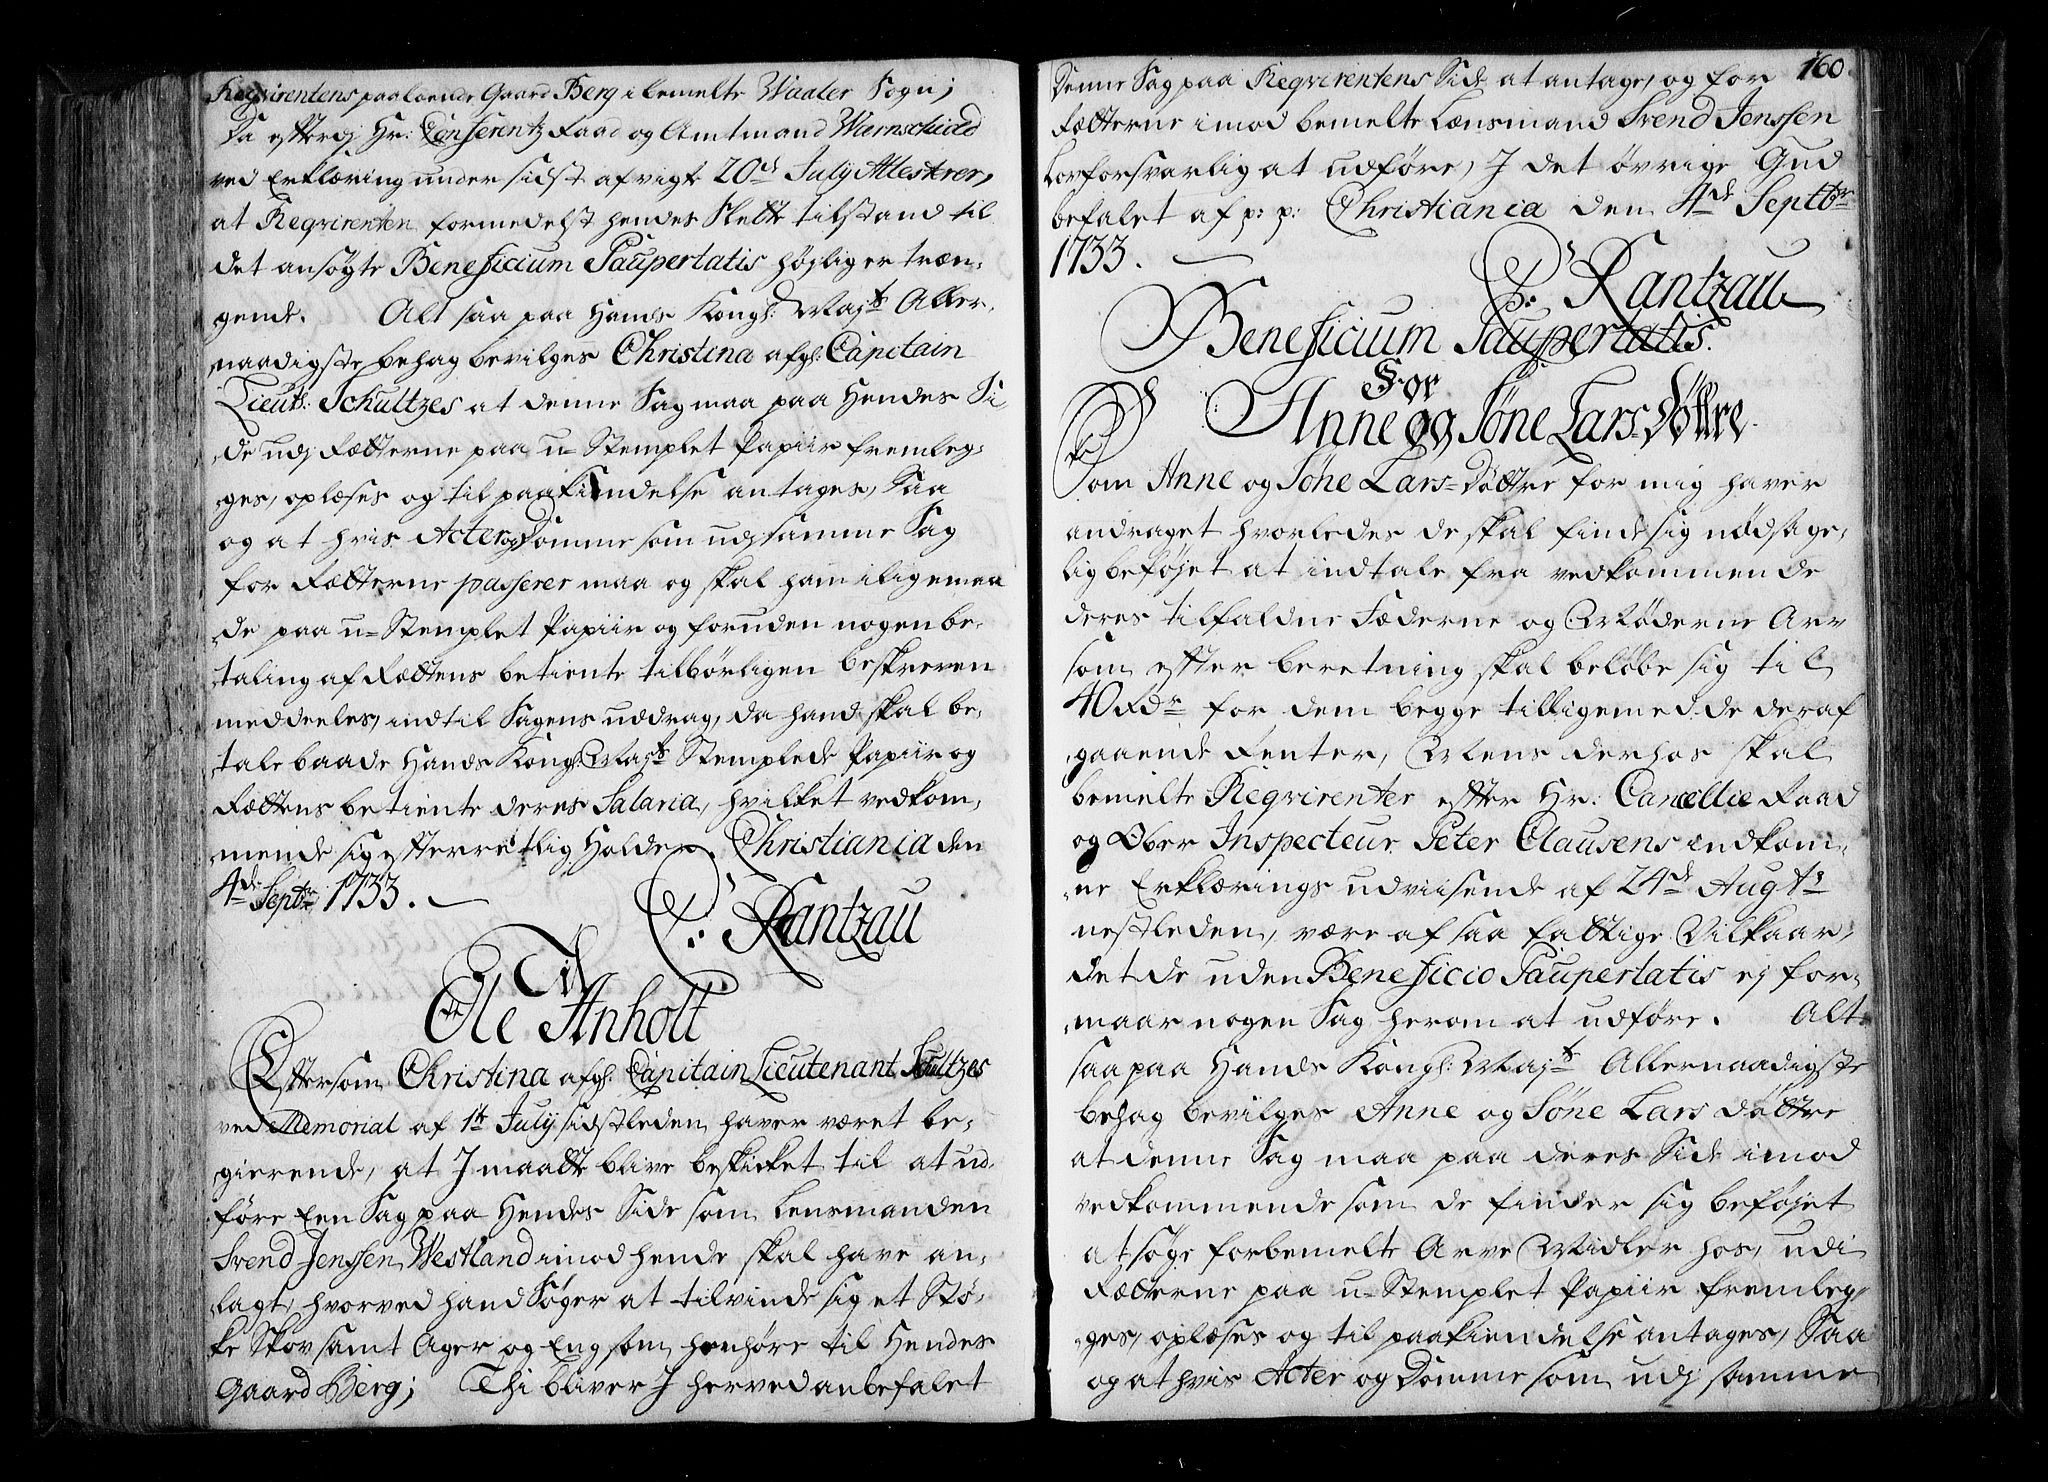 Reqvirentens paaboende Gaard Berg i bemelte Waaler Sogn;
Da efterdj Hr: Conferentz Raad og Amtmand Wernschiold
ved Erklæring under sidst afvigt 20de July Attesterer,
at Reqvirenten formedelst hendes slette tilstand til
det ansøgte Beneficium Paupertatis højlig er træn-
gende. Alt saa paa Hands Kongl: Mayts Aller-
naadigste behag bevilges Christina afgl: Capitain
Lieut: Schultzes at denne Sag maa paa Hendes Si-
de udj Rætterne paa u-Stemplet Papiir fremleg-
ges, oplæses og til paakiendelse antages, Saa
og at hvis Acter og Domme som udj samme Sag
for Rætterne passerer maa og skal ham iligemaa-
de paa u-Stemplet Papiir og foruden nogen be-
taling af Rættens betiente tilbørligen beskreven
meddeeles, indtil Sagens uddrag, da hand skal be-
tale baade Hands Kongl: Mayts Stemplede Papiir og
Rættens betiente deres Salaria, hvilket vedkom-
mende sig efterretlig Holder. Christiania den
4de Septbr 1733.
C: Rantzau
Til
Ole Anholt
Eftersom Christina afgl: Capitain Lieutenant Schultzes
ved Memorial af 1te July sidstleden haver været be-
gierende, at J maatte blive beskicket til at ud-
føre Een Sag paa Hendes Side som Lensmanden
Svend Jenssen Westland imod hende skal have an-
lagt, hvorved hand Søger at tilvinde sig et Støk-
ke Skov samt Ager og Eng som henhøre til Hendes
Gaard Berg; Thi bliver J herved anbefalet
160.
Denne Sag paa Reqvirentens Side at antage, og for
Rætterne imod bemelte Lænsmand Svend Jenssen
Lovforsvarlig at udføre, J det øvrige Gud
befalet af p: p: Christiania den 4de Septbr
1733.
C: Rantzau
Beneficium Paupertatis
For
Anne og Søne Lars-Døttre
Som Anne og Søne Lars-Døttre for mig haver
andraget hvorledes de skal finde sig nødsage-
lig beføjet at indtale fra vedkommende
deres tilfaldne Fæderne og Møderne Arv
som efter beretning skal beløbe sig til
40 Rdr for dem begge tilligemed de deraf
gaaende Renter, Mens derhos skal
bemelte Reqvirenter efter Hr: Cancellie Raad
og Ober Inspecteur Peter Clausens indkom-
ne Erklærings udviisende af 24de Augts
nestleden, være af saa fattige Vilkaar,
det de uden Beneficio Paupertatis ej for-
maar nogen Sag herom at udføre. Alt-
saa paa Hands Kongl: Mayts Allernaadigste
behag bevilges Anne og Søne Lars Døttre
at denne Sag maa paa deres Side imod
vedkommende som de finder sig beføjet
at søge forbemelte Arve Midler hos, udi
Rætterne paa u-Stemplet Papiir fremleg-
ges, oplæses og til paakiendelse antages, Saa
og at hvis Acter og Domme som udj samme